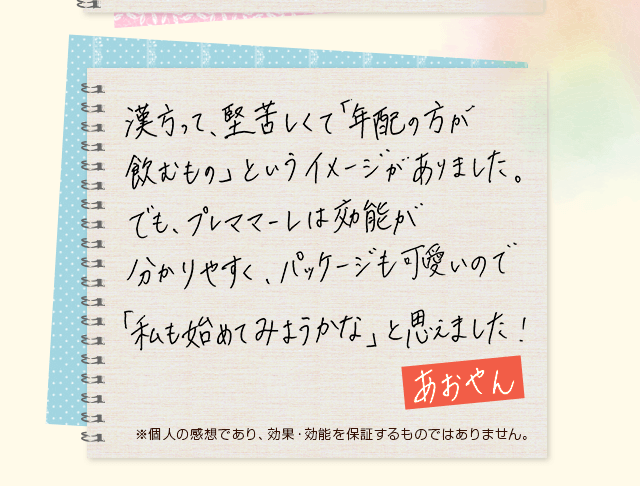 漢方って、堅苦しくて「年配の方が
飲むもの」というイメージがありました。
でも、プレママーレは効能が
分かりやすく、パッケージも可愛いので
「私も始めてみようかな」と思えました!
あおやん
※個人の感想であり、効果・効能を保証するものではありません。